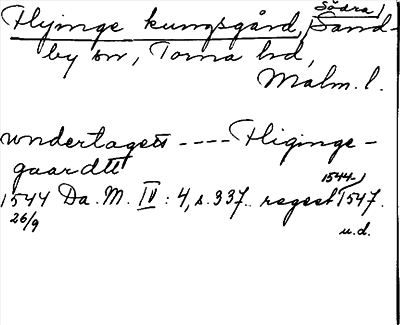 Flyinge kungsgård, Södra Sand-
by sn, Torna hd,
Malm. l.
undertagett ---- Fliginge-
gaardtt
1544 Da. M. IV : 4, s. 337. regest 1544-1547.
26/9 u.d.